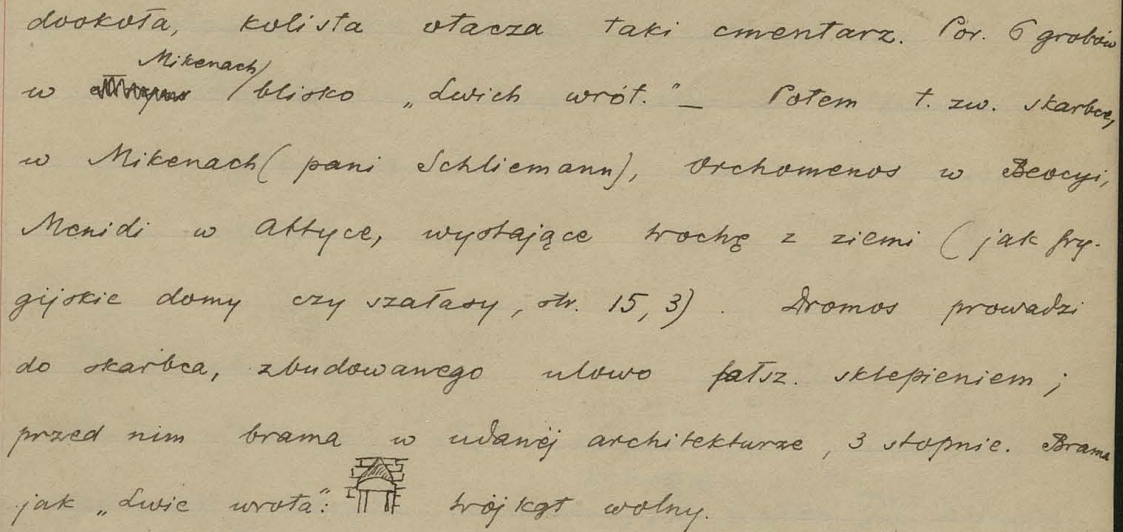 dookoła, kolista otacza taki cmentarz. Por. 6 grobów
Mikenach
w blisko „Lwich wrót." – Potem t. zw. skarbce,
w Mikenach (pani Schliemann), Orchomenos w Beocyi,
Menidi w Attyce, wystające trochę z ziemi (jak fry-
gijskie domy czy szałasy, str. 15, 3). Dromos prowadzi
do skarbca, zbudowanego ulowo fałsz. sklepieniem;
przed nim brama w udanej architekturze, 3 stopnie. Brama
jak „Lwie wrota": trójkąt wolny.